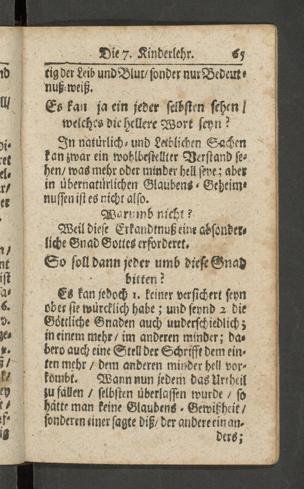 Die 7. Kinderlehr. 65
tig der Leib und Blut / sonder nur Bedeut-
nuß weiß.
Es kan ja ein jeder selbsten sehen /
welches die hellere Wort seyn?
In natürlich- und Leiblichen Sachen
kan zwar ein wohlbestellter Verstand se-
hen / was mehr oder minder hell seye; aber
in übernatürlichen Glaubens-Geheim-
nussen ist es nicht also.
Warumb nicht?
Weil diese Erkandtnuß eine absonder-
liche Gnad Gottes erforderet.
So soll dann jeder umb diese Gnad
bitten?
Es kan jedoch 1. keiner versichert seyn
ober sie würcklich habe; und seynd 2 die
Göttliche Gnaden auch underschiedlich;
in einem mehr / im anderen minder; da-
hero auch eine Stell der Schrifft dem ein-
ten mehr / dem anderen minder hell vor-
kombt. Wann nun jedem das Urtheil
zu fällen / selbsten überlassen wurde / so
hätte man keine Glaubens-Gewißheit /
sonderen einer sagte diß / der andere ein an-
ders;